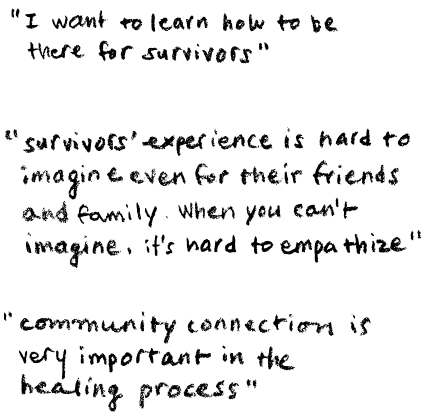 "I want to learn how to be
there for survivors"
"survivors' experience is hard to
imagine even for their friends
and family. When you can't
imagine, it's hard to empathize"
"community connection is
very important in the
healing process"